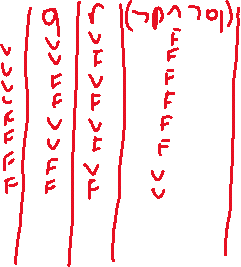 q r (¬p ∧ ¬q)
V V V F
V V F F
V F V F
V F F F
F V V F
F V F F
F F V V
F F F V